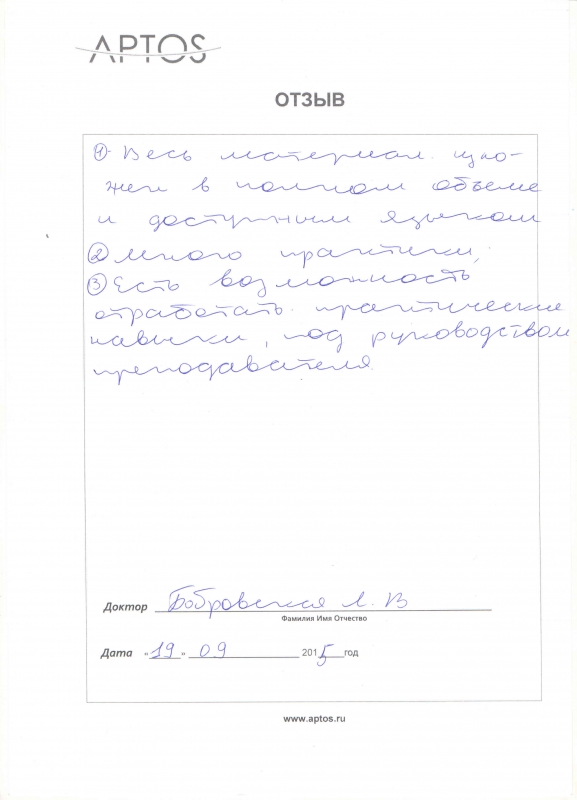 APTOS
ОТЗЫВ
① Весь материал изло-
жен в полном объеме
и доступным языком
② Много практики;
③ Есть возможность
отработать практические
навыки, под руководством
преподавателя
Доктор Бобровская Л. В
Фамилия Имя Отчество
Дата «19» 09 2015 год
www.aptos.ru